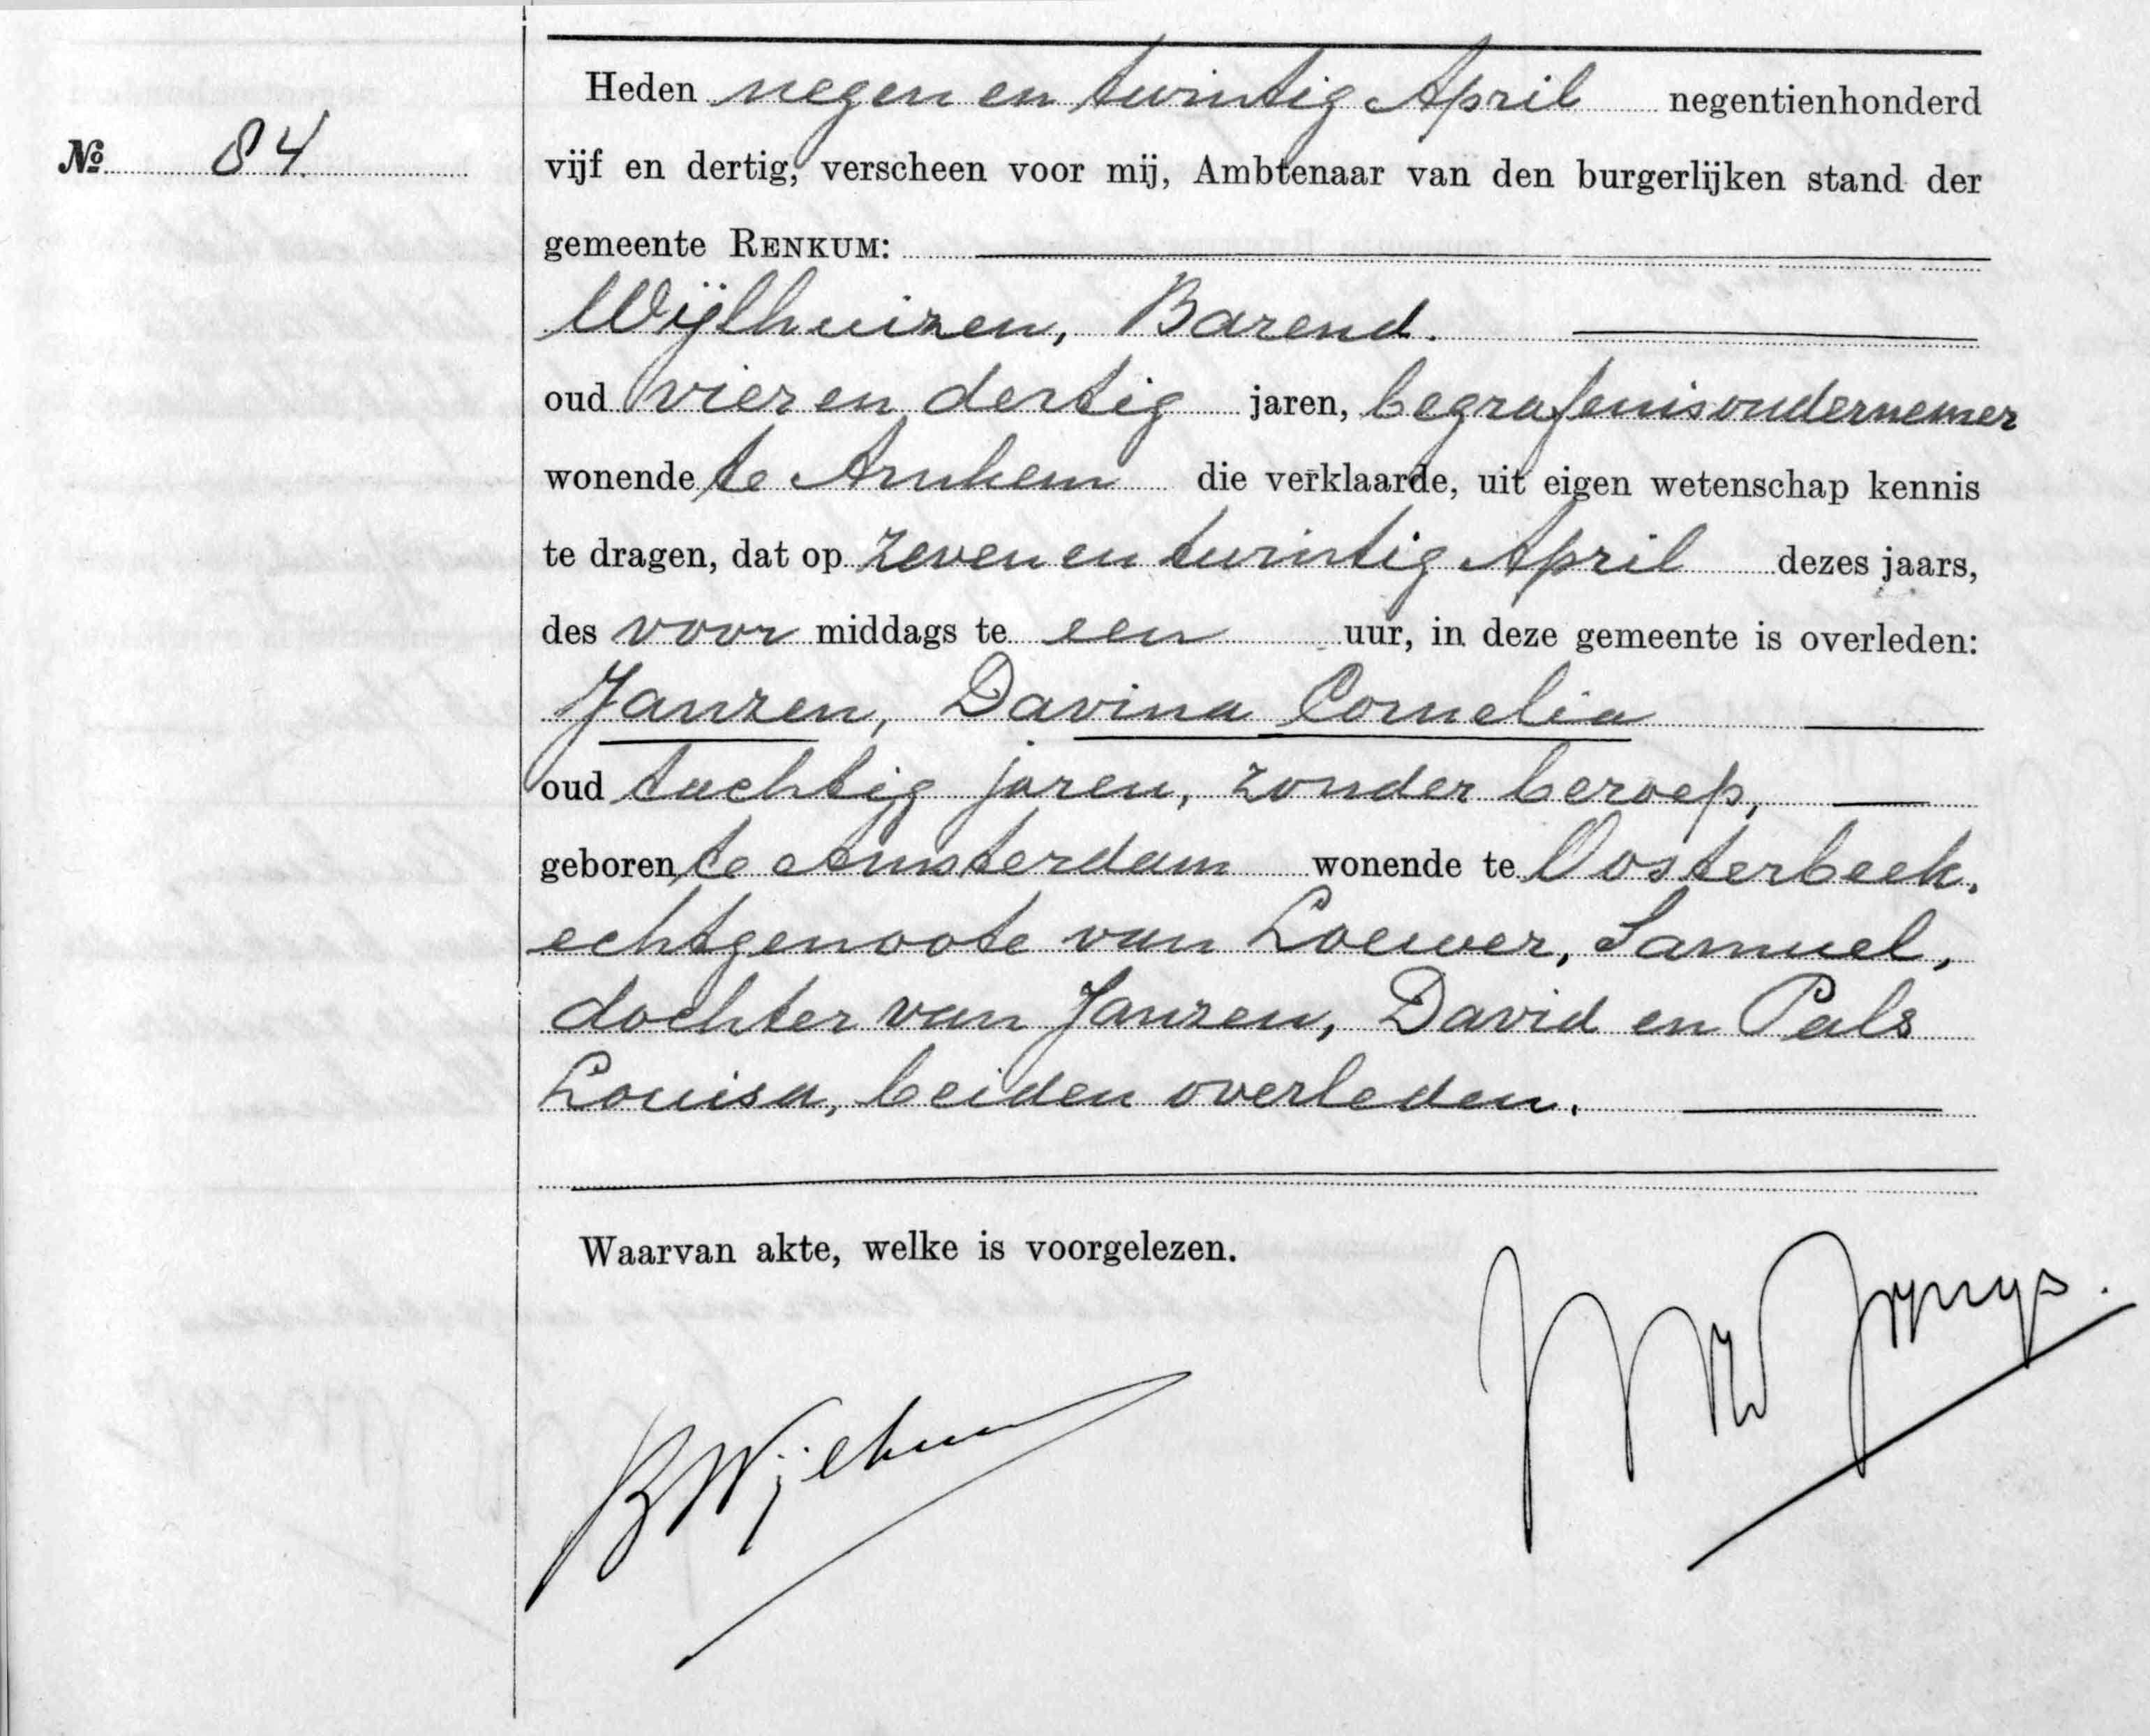 Heden negen en twintig April negentienhonderd
№ 84.
vijf en dertig, verscheen voor mij, Ambtenaar van den burgerlijken stand der
gemeente RENKUM:
Wijlhuizen, Barend.
oud vier en dertig jaren, begrafenisondernemer
wonende te Arnhem die verklaarde, uit eigen wetenschap kennis
te dragen, dat op zeven en twintig April dezes jaars,
des voor middags te een uur, in deze gemeente is overleden:
Janzen, Davina Cornelia
oud tachtig jaren, zonder beroep,
geboren te Amsterdam wonende te Oosterbeek,
echtgenoote van Loewer, Samuel,
dochter van Janzen, David en Pals
Louisa, beiden overleden.
Waarvan akte, welke is voorgelezen.